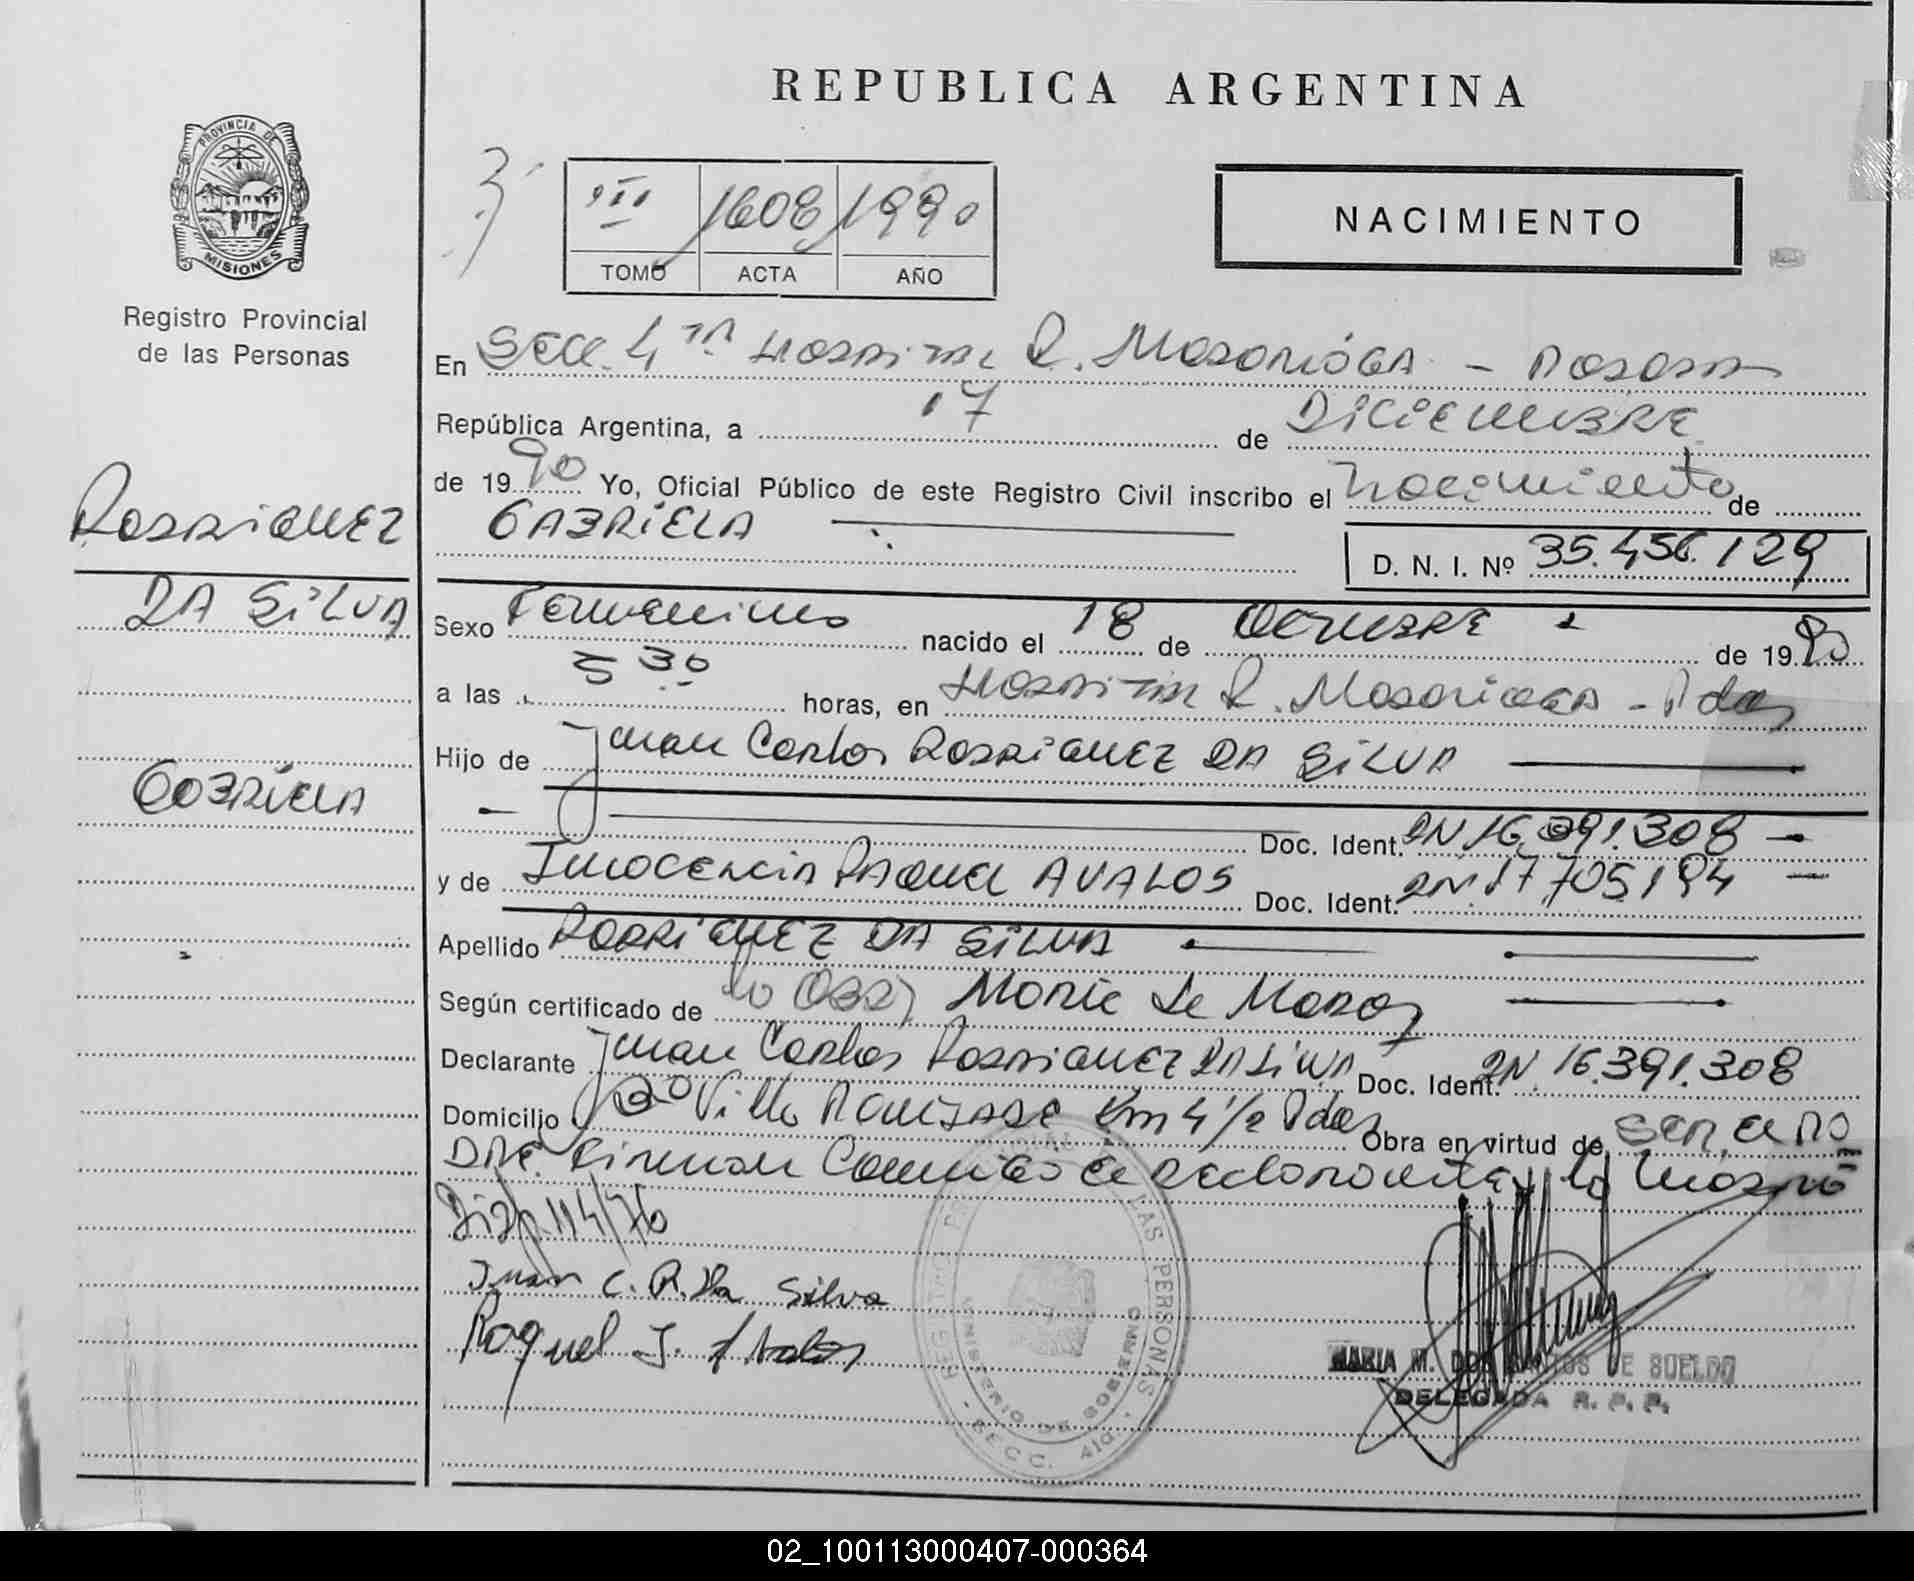 REPUBLICA ARGENTINA
PROVINCIA DE
MISIONES
Registro Provincial
de las Personas
III 1608 1990
TOMO ACTA AÑO
NACIMIENTO
En Secc. 4ta Hospital R. Madariaga - Posadas
República Argentina, a 17 de DICIEMBRE
de 1990 Yo, Oficial Público de este Registro Civil inscribo el nacimiento de
GABRIELA
D. N. I. Nº 35.456.129
RODRIGUEZ
DA SILVA
GABRIELA
Sexo Femenino nacido el 18 de OCTUBRE de 1990
a las 5 30 horas, en Hospital R. Madariaga - Pdas
Hijo de Juan Carlos RODRIGUEZ DA SILVA
Doc. Ident. DN 16.391.308
y de Inocencia Raquel AVALOS Doc. Ident. DN 17.705.194
Apellido RODRIGUEZ DA SILVA
Según certificado de la Obst. Marie de
Declarante Juan Carlos RODRIGUEZ DA SILVA Doc. Ident. DN 16.391.308
Domicilio Bº Villa Km 4 1/2 Pdas Obra en virtud de ser el PA
DRE. Firman la madre
Disp 114/76
Juan C. R. Da Silva
Raquel I. Avalos
REGISTRO PROVINCIAL DE LAS PERSONAS
MINISTERIO DE GOBIERNO
SECC. 4ta
MARIA M. DOS SANTOS DE SUELDO
DELEGADA R. P. P.
02_100113000407-000364